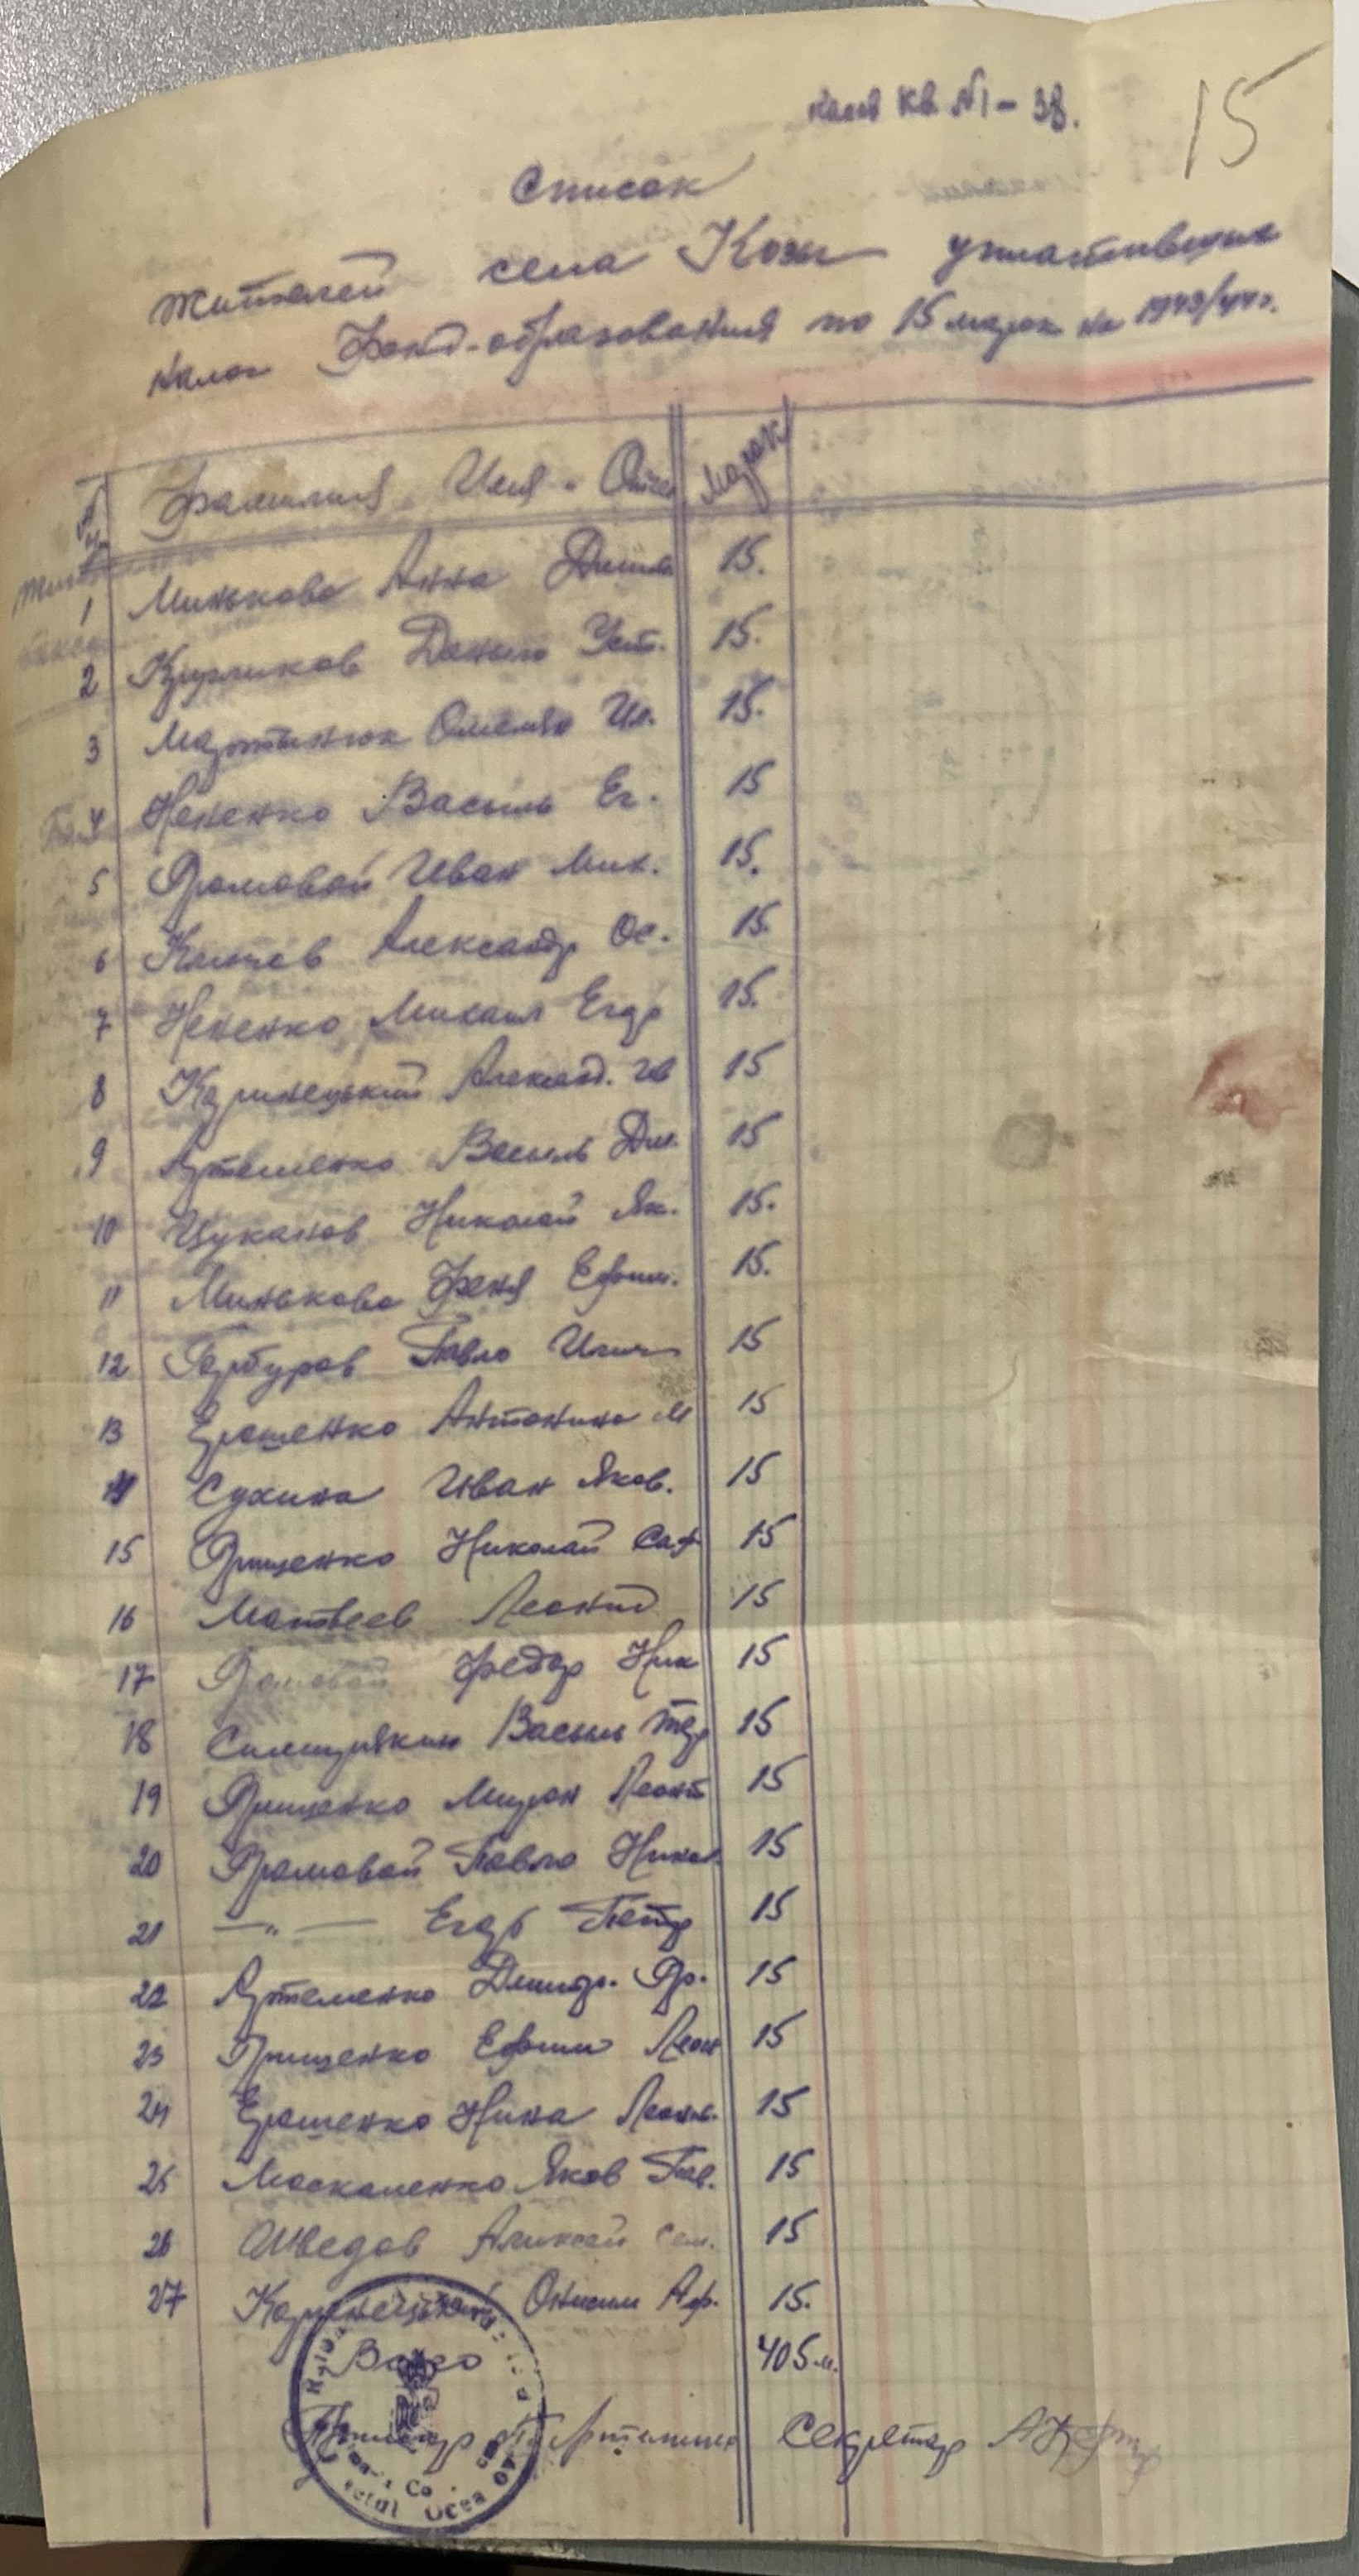 кв №1 - 38.
15
Список
жителей села Козы уплативших
налог Фонд-образования по 15 марок на 1943/44 г.
Фамилия Имя Отче Марок
1 Минькова Анна 15.
2 Данило Уст. 15.
3 Мартинюк Омелян Ил. 15.
4 Нененко Василь Ег. 15
5 Яромовой Иван Мик. 15.
6 Клычев Александр Ос. 15.
7 Нененко Михаил Егор 15.
8 Каринецький Александ. Ив 15
9 Артеменко Василь Дм. 15
10 Цуканов Николай Як. 15.
11 Минькова Феня Ефим. 15.
12 Гарбуров Павло Илич 15
13 Ерошенко Антонина М 15
14 Сухина Иван Яков. 15
15 Грищенко Николай Саф 15
16 Матвеев Леонид 15
17 Федор Ник 15
18 Василь 15
19 Грищенко Мирон Леонт 15
20 Яромовой Павло Никол. 15
21 —"— Егор Петр 15
22 Артеменко Дмитр. 15
23 Грищенко Ефим Леон 15
24 Ерошенко Нина Леон. 15
25 Москаленко Яков Пав. 15
26 Шведов Алексей Сем. 15
27 Каринецький Онисим Аф. 15.
Всего 405 м.
Секретар